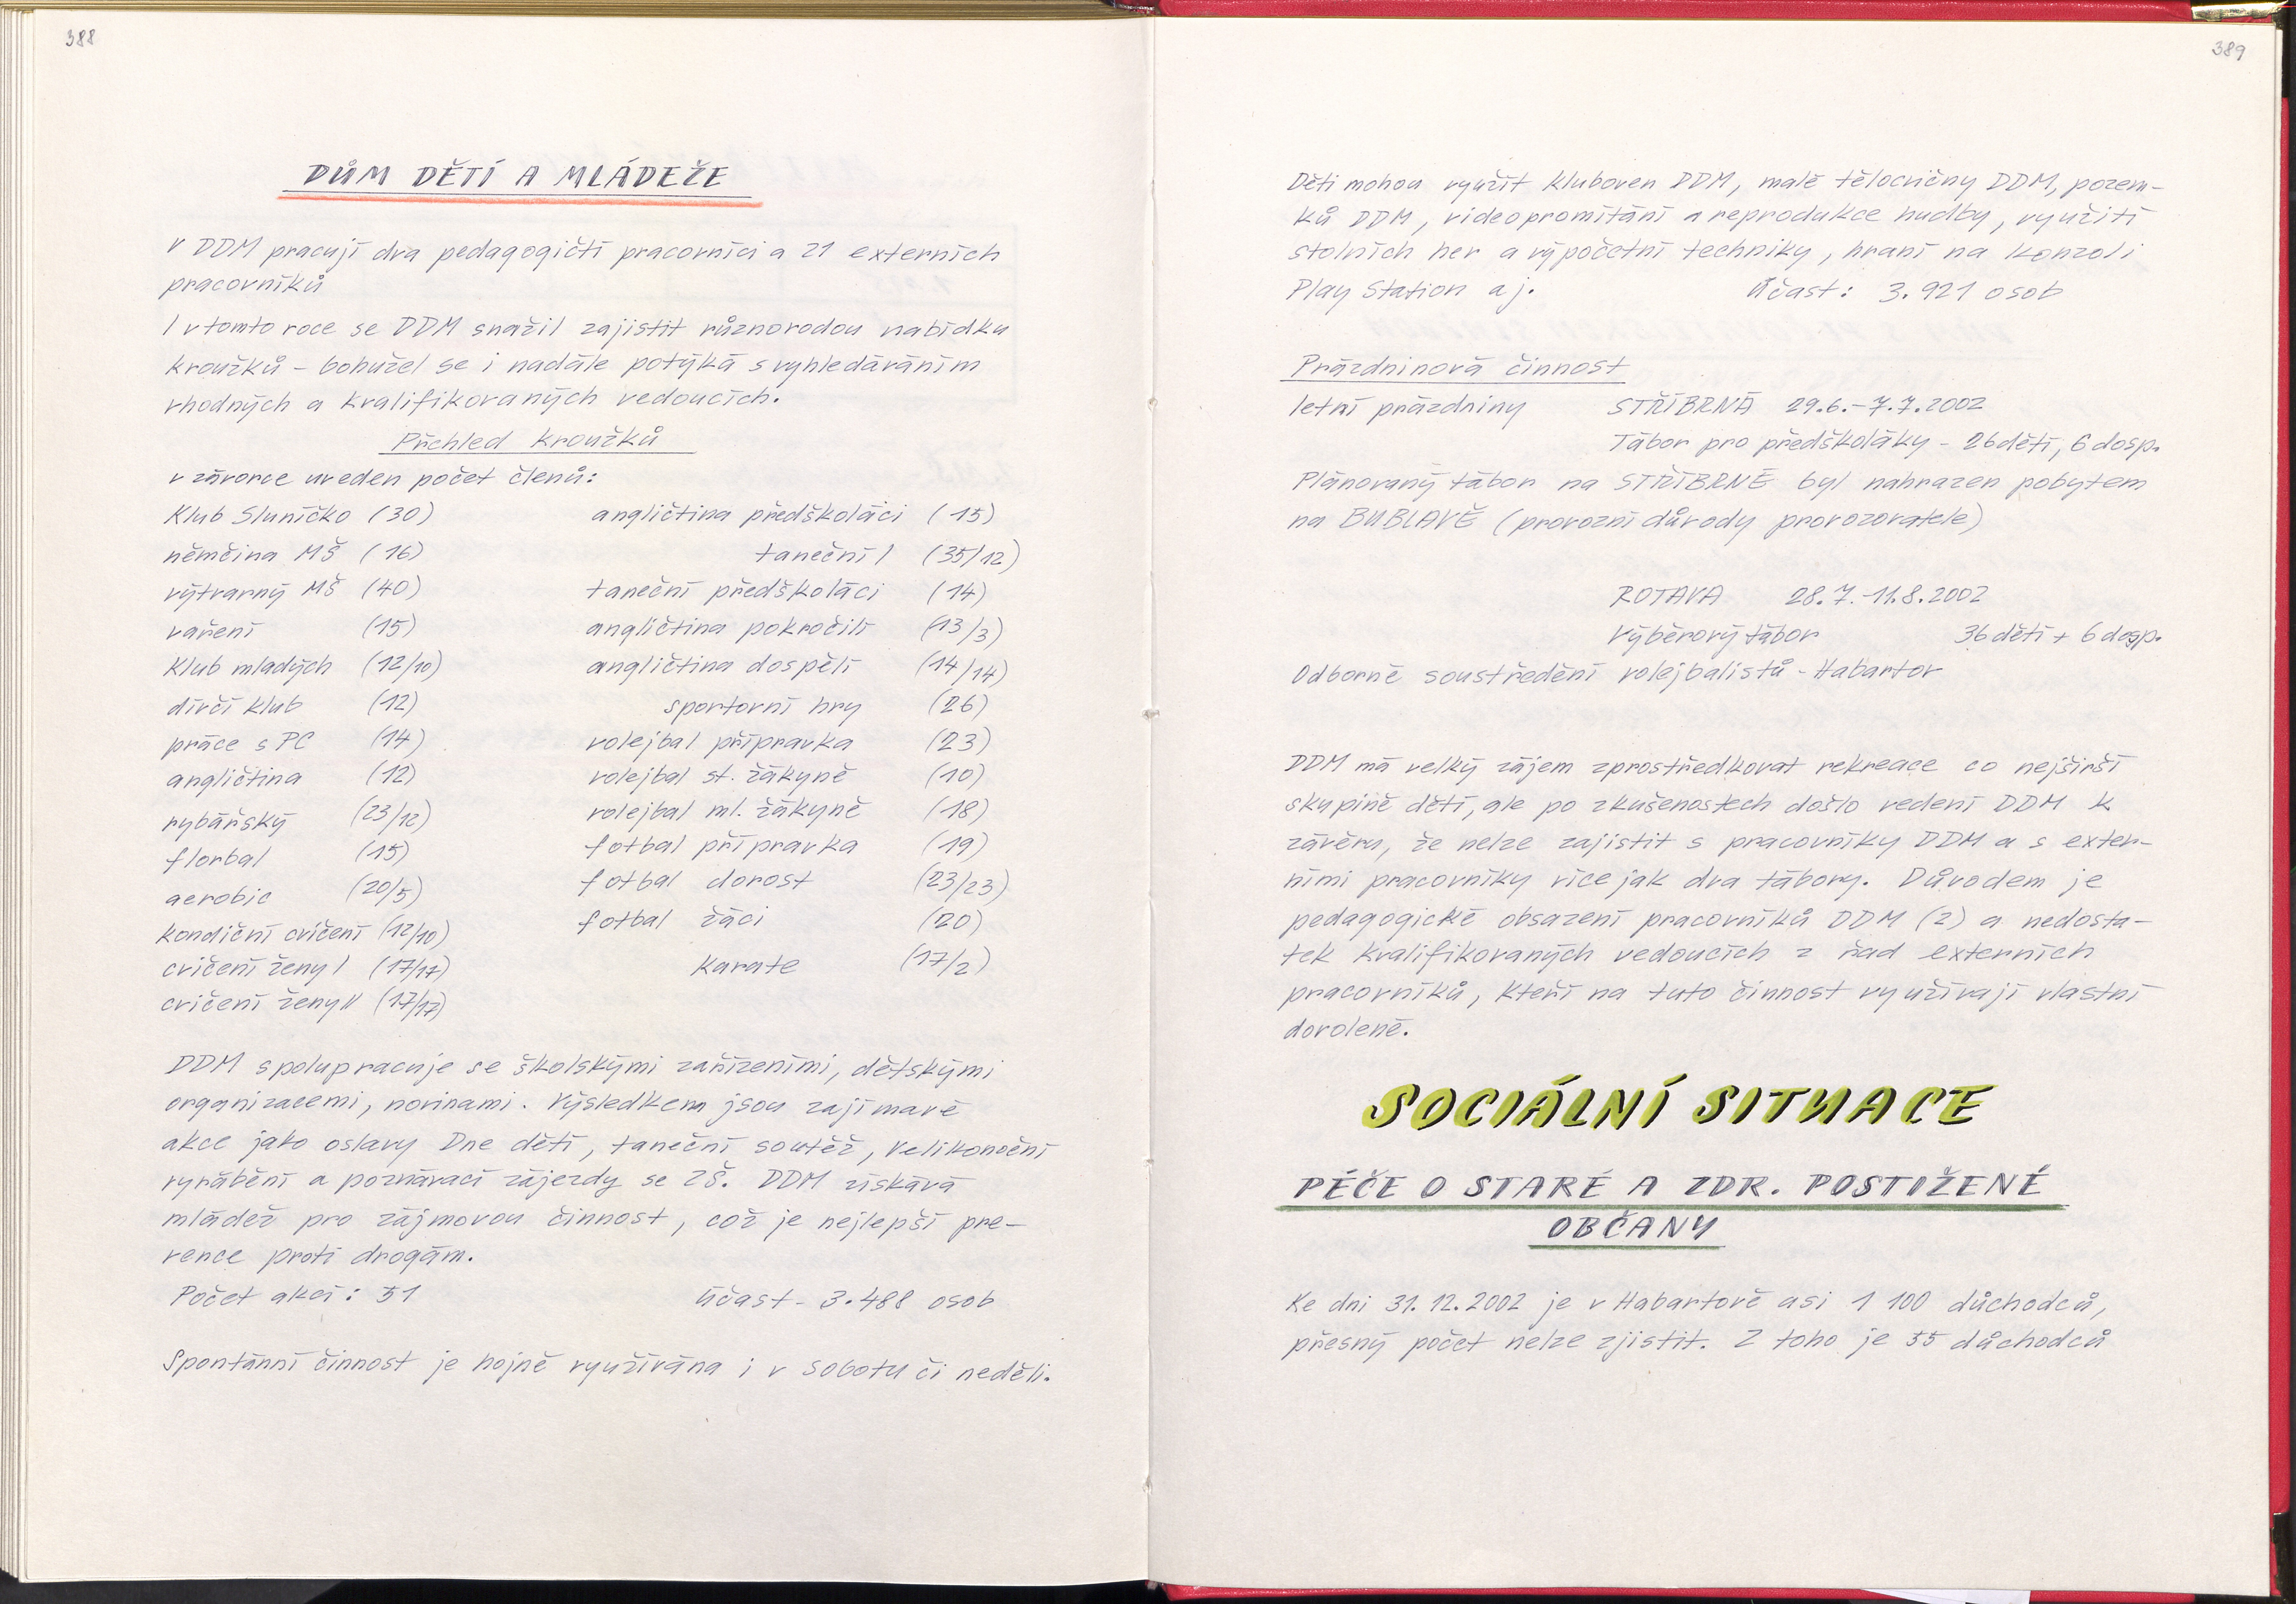 388
DŮM DĚTÍ A MLÁDEŽE
V DDM pracují dva pedagogičtí pracovníci a 21 externích
pracovníků
I v tomto roce se DDM snažil zajistit různorodou nabídku
kroužků – bohužel se i nadále potýká s vyhledáváním
vhodných a kvalifikovaných vedoucích.
Přehled kroužků
v závorce uveden počet členů:
Klub Sluníčko (30) angličtina předškoláci (15)
němčina MŠ (16) taneční I (35/12)
výtvarný MŠ (40) taneční předškoláci (14)
vaření (15) angličtina pokročilí (13/3)
Klub mladých (12/10) angličtina dospělí (14/14)
dívčí klub (12) sportovní hry (26)
práce s PC (14) volejbal přípravka (23)
angličtina (12) volejbal st. žákyně (10)
rybářský (23/12) volejbal ml. žákyně (18)
florbal (15) fotbal přípravka (19)
aerobic (20/5) fotbal dorost (23/23)
kondiční cvičení (12/10) fotbal žáci (20)
cvičení ženy I (17/17) karate (17/2)
cvičení ženy II (17/17)
DDM spolupracuje se školskými zařízeními, dětskými
organizacemi, novinami. Výsledkem jsou zajímavé
akce jako oslavy Dne dětí, taneční soutěž, Velikonoční
vyrábění a poznávací zájezdy se ZŠ. DDM získává
mládež pro zájmovou činnost, což je nejlepší pre-
vence proti drogám.
Počet akcí: 51 účast – 3.488 osob
Spontánní činnost je hojně využívána i v sobotu či neděli.
389
Děti mohou využít kluboven DDM, malé tělocvičny DDM, pozem-
ků DDM, videopromítání a reprodukce hudby, využití
stolních her a výpočetní techniky, hraní na konzoli
Play Station aj. Účast: 3.921 osob
Prázdninová činnost
letní prázdniny STŘÍBRNÁ 29.6.–7.7.2002
Tábor pro předškoláky – 26 dětí, 6 dosp.
Plánovaný tábor na STŘÍBRNÉ byl nahrazen pobytem
na BUBLAVĚ (provozní důvody provozovatele)
ROTAVA 28.7.–11.8.2002
Výběrový tábor 36 dětí + 6 dosp.
Odborné soustředění volejbalistů – Habartov
DDM má velký zájem zprostředkovat rekreace co nejširší
skupině dětí, ale po zkušenostech došlo vedení DDM k
závěru, že nelze zajistit s pracovníky DDM a s exter-
ními pracovníky více jak dva tábory. Důvodem je
pedagogické obsazení pracovníků DDM (2) a nedosta-
tek kvalifikovaných vedoucích z řad externích
pracovníků, kteří na tuto činnost využívají vlastní
dovolené.
SOCIÁLNÍ SITUACE
PÉČE O STARÉ A ZDR. POSTIŽENÉ
OBČANY
Ke dni 31.12.2002 je v Habartově asi 1 100 důchodců,
přesný počet nelze zjistit. Z toho je 55 důchodců